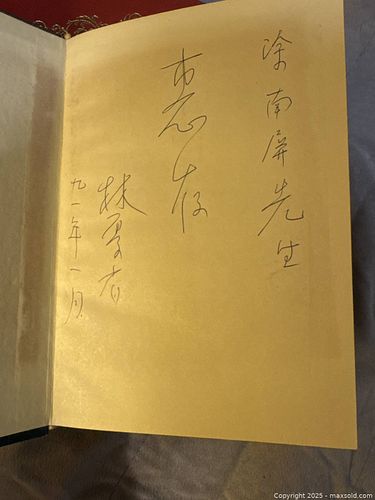 涂南屏先生
惠存
林
九一年一月
Copyright 2025 - maxsold.com